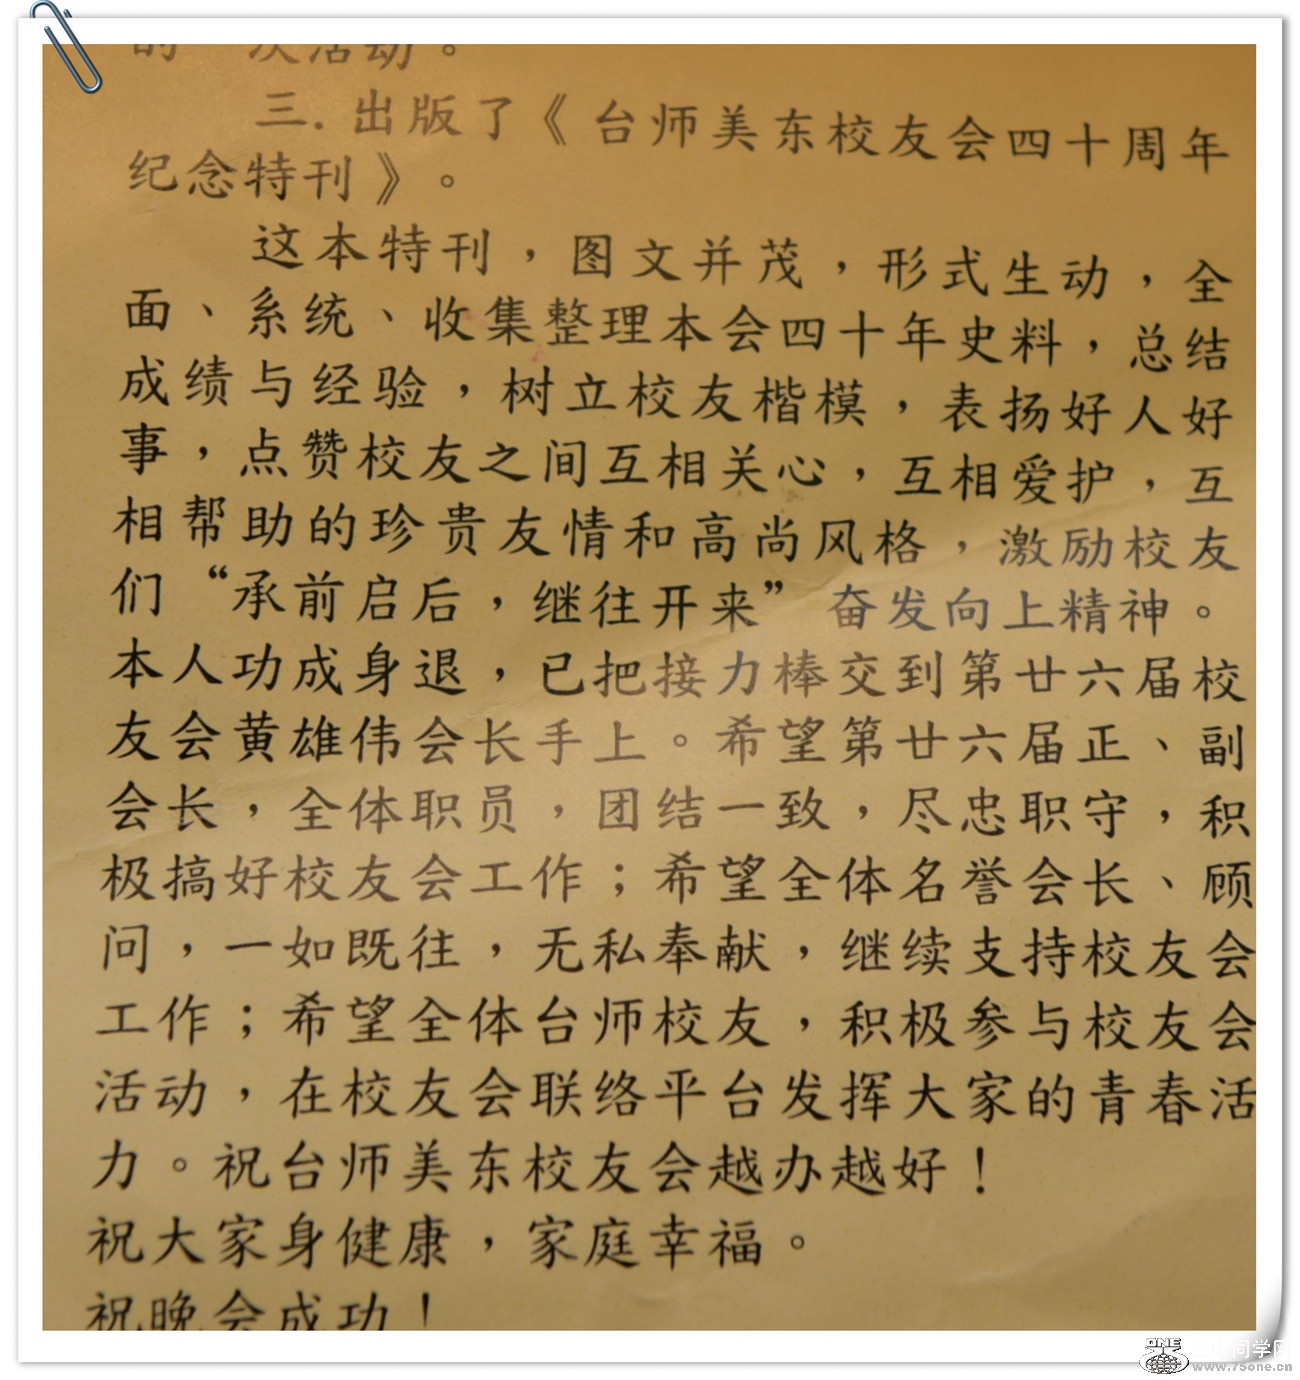 的一次活动。
三. 出版了《台师美东校友会四十周年
纪念特刊》。
这本特刊，图文并茂，形式生动，全
面、系统、收集整理本会四十年史料，总结
成绩与经验，树立校友楷模，表扬好人好
事，点赞校友之间互相关心，互相爱护，互
相帮助的珍贵友情和高尚风格，激励校友
们“承前启后，继往开来”奋发向上精神。
本人功成身退，已把接力棒交到第廿六届校
友会黄雄伟会长手上。希望第廿六届正、副
会长，全体职员，团结一致，尽忠职守，积
极搞好校友会工作；希望全体名誉会长、顾
问，一如既往，无私奉献，继续支持校友会
工作；希望全体台师校友，积极参与校友会
活动，在校友会联络平台发挥大家的青春活
力。祝台师美东校友会越办越好！
祝大家身健康，家庭幸福。
祝晚会成功！
ONE
同学网
www.75one.cn